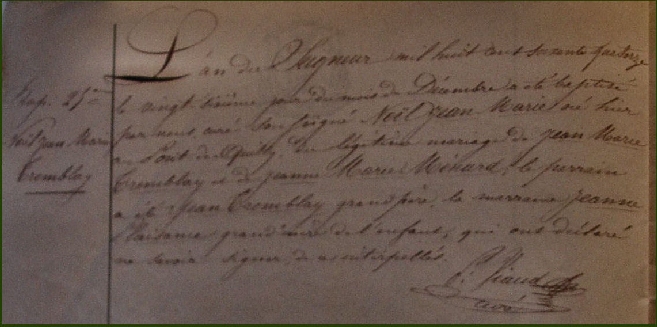 Bap. 25me
Noël Jean Marie
Tremblay
L'an du Seigneur mil huit cent soixante quatorze
le vingt sixième jour du mois de Décembre a été baptisé
par nous curé soussigné Noël Jean Marie né hier
au Pont du Quilly du légitime mariage de Jean Marie
Tremblay et de Jeanne Marie Ménard, le parrain
a été Jean Tremblay grand père, la marraine Jeanne
grand'mère de l'enfant, qui ont déclaré
ne savoir signer de ce interpellés.
curé